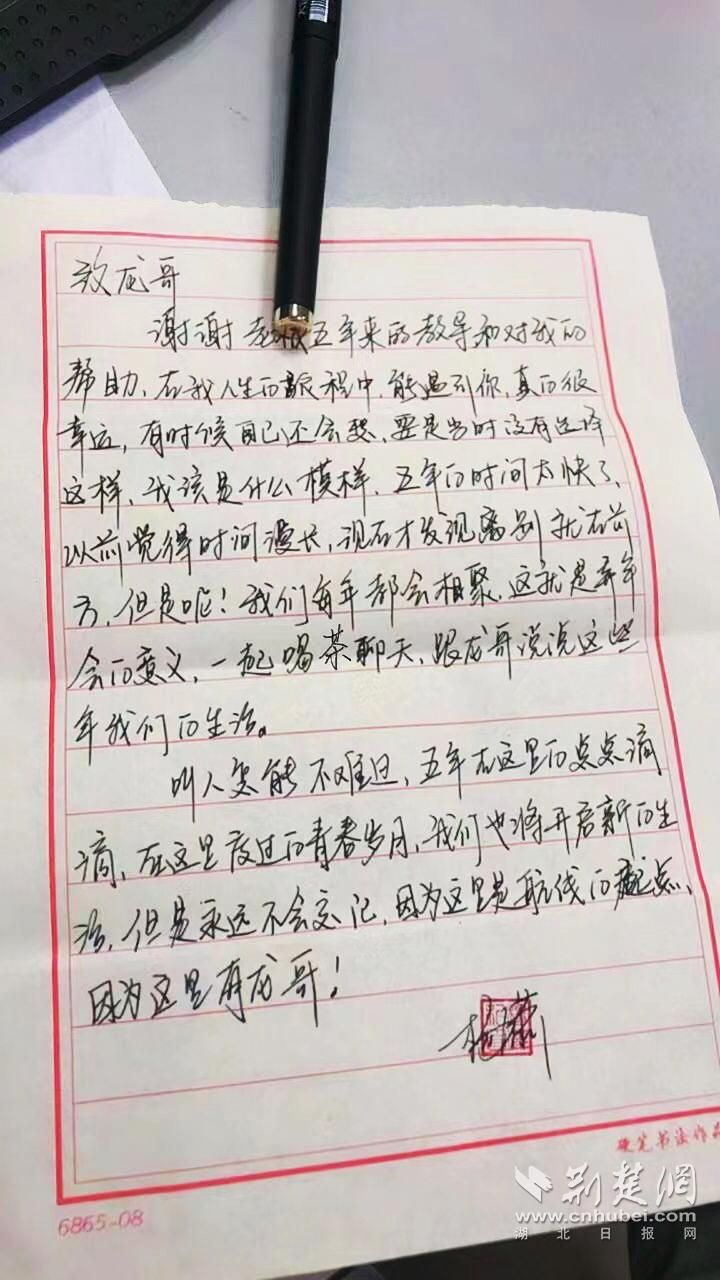 致龙哥
谢谢龙哥五年来的教导和对我的
帮助、在我人生的旅程中、能遇到你、真的很
幸运,有时候自己还会想、要是当时没有选择
这样、我该是什么模样、五年的时间太快了、
以前觉得时间漫长、现在才发现离别就在前
方、但是呢!我们每年都会相聚、这就是新年
会的意义,一起喝茶聊天、跟龙哥说说这些
年我们的生活。
叫人怎能不难过、五年在这里的点点滴
滴、在这里度过的青春岁月、我们也将开启新的生
活、但是永远不会忘记、因为这里是航线的起点、
因为这里有龙哥!
硬笔书法作品
6865-08
荆楚网
www.cnhubei.com
湖北日报网